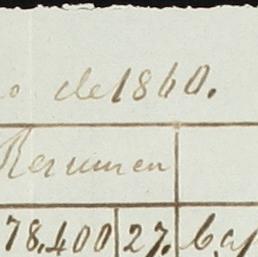 o de 1860.
Resumen
78.400 27.